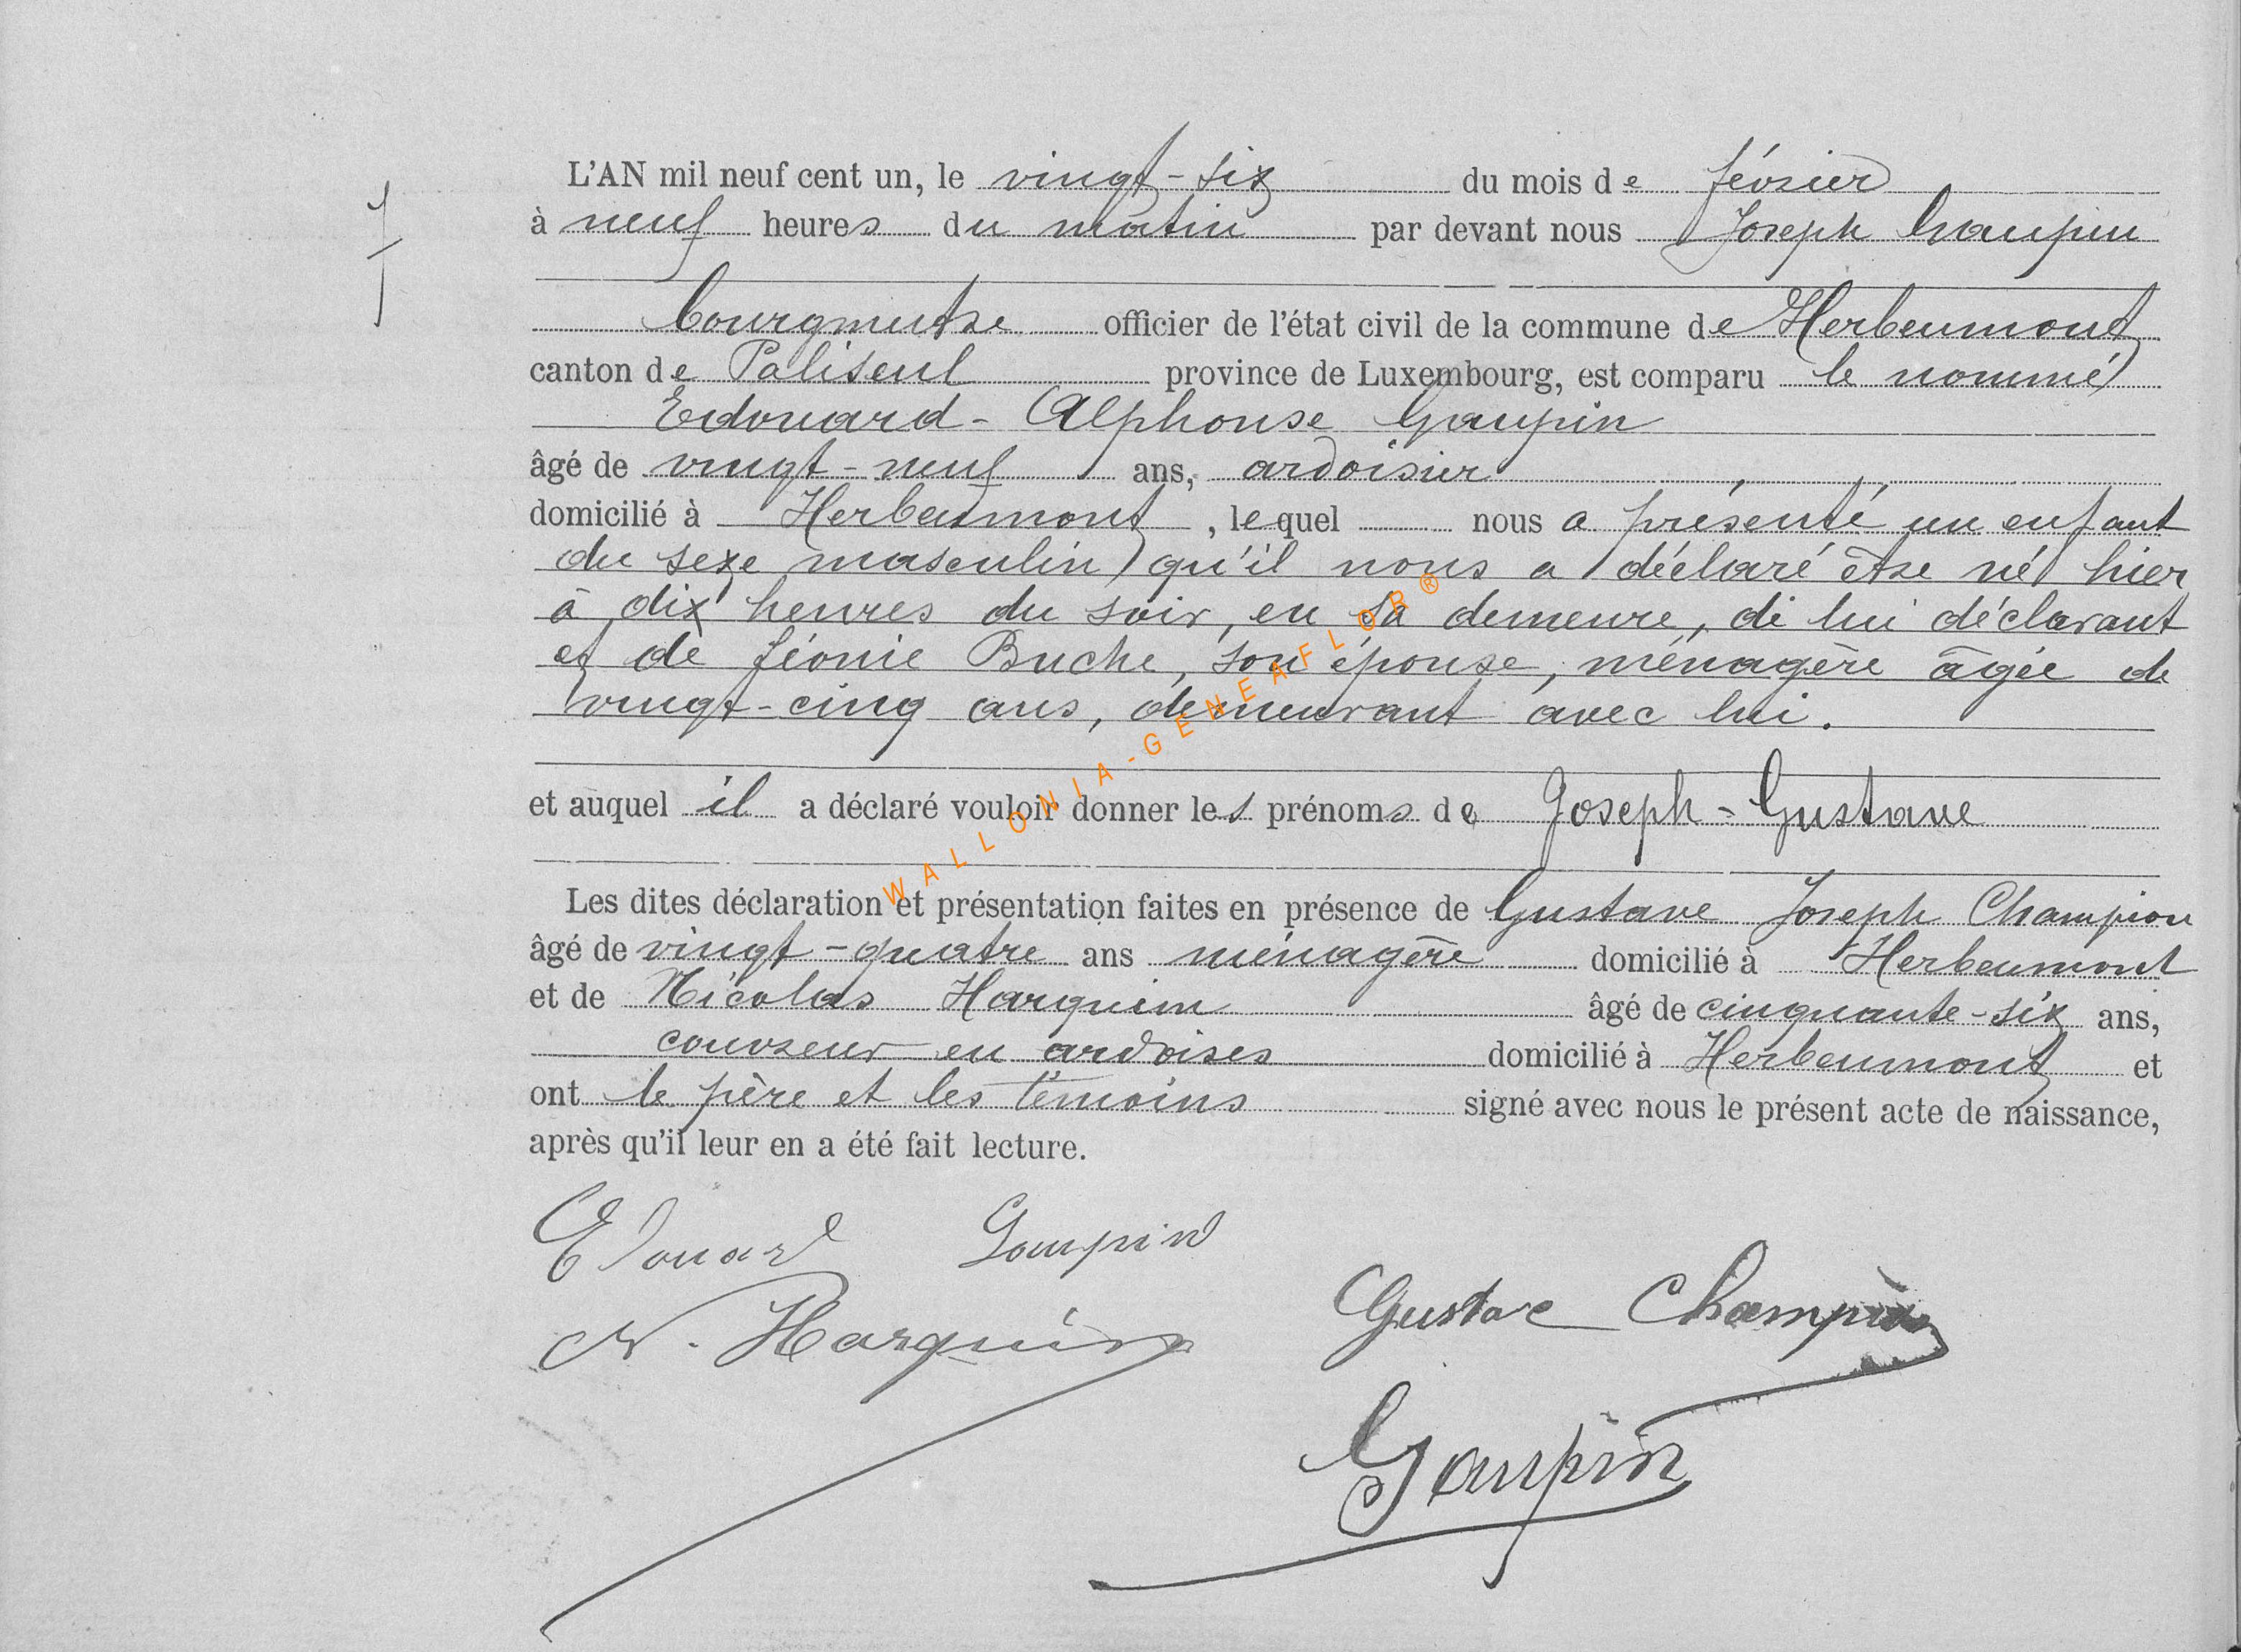 L'AN mil neuf cent un, le vingt-six du mois de février
à neuf heures du matin par devant nous Joseph Gaupin
bourgmestre officier de l'état civil de la commune de Herbeumont
canton de Paliseul province de Luxembourg, est comparu le nommé
Edouard-Alphonse Gaupin
âgé de vingt-neuf ans, ardoisier
domicilié à Herbeumont, lequel nous a présenté un enfant
du sexe masculin qu'il nous a déclaré être né hier
à dix heures du soir, en sa demeure, de lui déclarant
et de Léonie Buche, son épouse, ménagère âgée de
vingt-cinq ans, demeurant avec lui.
et auquel il a déclaré vouloir donner les prénoms de Joseph-Gustave
Les dites déclaration et présentation faites en présence de Gustave Joseph Champion
âgé de vingt-quatre ans ménagère domicilié à Herbeumont
et de Nicolas Harquin âgé de cinquante-six ans,
couvreur en ardoises domicilié à Herbeumont et
ont le père et les témoins signé avec nous le présent acte de naissance,
après qu'il leur en a été fait lecture.
Edouard Gaupin
Gustave Champion
N. Harquin
Gaupin
WALLONIA-GENEAFLOR®